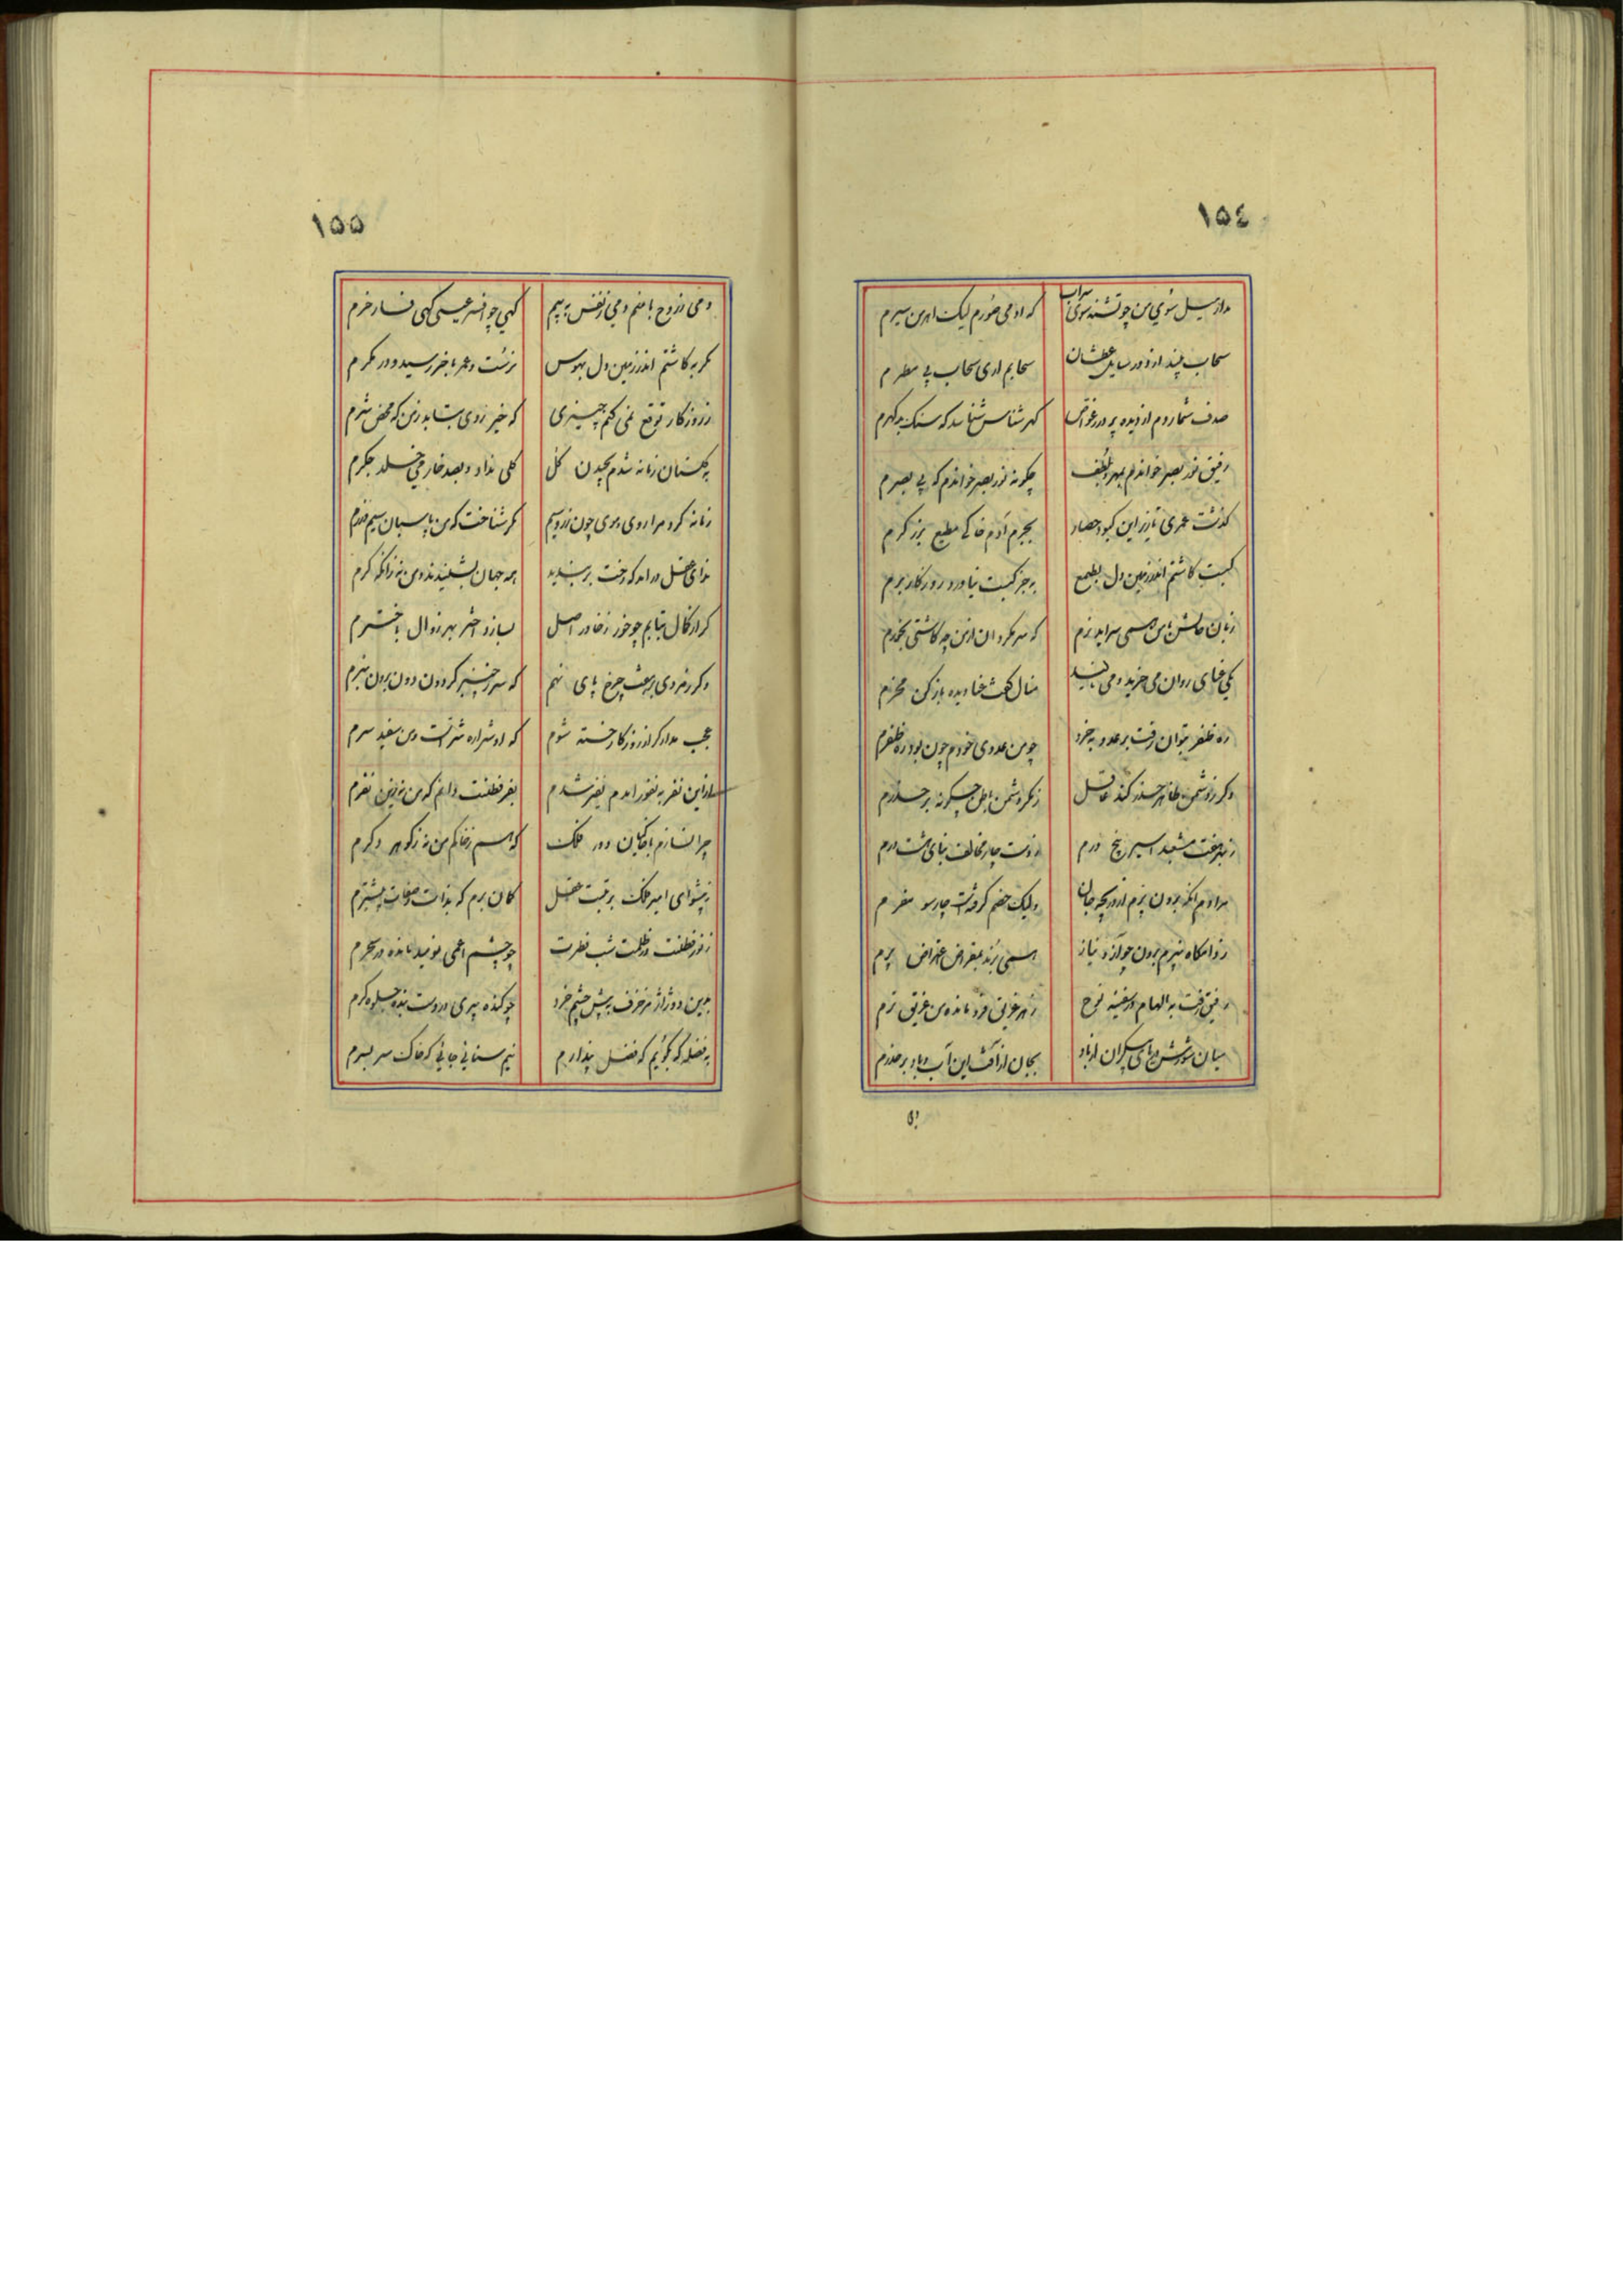 ١٥٤
مدار سیل سوی من چو تشنه سوی سراب
که آدمی صورم لیک اهرمن سیرم
سحاب پندارد در سایل عطشان
سحابم اری سحاب بی مطرم
صدف شماردم از دیده پر درر غواص
گهر شناس شناسد که سنگ بد گهرم
رفیق نور بصر خواندم بمهر و بلطف
چگونه نور بصر خواندم که بی بصرم
گذشت عمری تا زیر این کبود حصار
بجرم آدم خاکی مطیع برزگرم
کبست کاشتم اندر زمین دل بطمع
به جز کبست نیاورد روزگار برم
زبان حالش با من همی سراید نرم
که سر مگردان از من چه کاشتی بخورم
یکی خدای روان می خرید و می
منال کت خدا دیده باز کن
ره ظفر بتوان رفت بر عدو به خرد
چو من عدوی خودم چون بود ره ظفرم
وگر ز دشمن ظاهر حذر کند عاقل
ز مکر دشمن باطن چگونه بر حذرم
اسیر پنج درم
ز دست چار مخالف بنای هشت درم
مرا دم آنکه برون پرم از دریچه جان
ولیک خصم گرفته است چارسو مفرم
ز دامگاه بپرم برون چو از نیاز
همی برند بمقراض اعتراض پرم
رفیق رفت به الهام در سفینه نوح
ز هر غریق فرو مانده من غریق ترم
میان شورش دریای بیکران از باد
بجان از آفت این آب و باد بر حذرم
١٥٥
دمی ز روح با منم دمی ز نفس به بیم
گهی چو افسر عیسی گهی فسار خرم
مگر به کاشتم اندر زمین دل بهوس
نرست و عمر باخر رسید و در مگرم
ز روزگار توقع نمی کنم چیزی
که خیر زوی بتابد ز من که محض شرم
به گلستان زمانه شدم بچیدن گل
گلی نداد و بصد خار می خلد جگرم
زمانه کرد مرا روی و موی چون زر و سیم
مگر شناخت که من پاسبان سیم و زرم
ندای عقل درآمد که رخت بربندید
همه جهان بشنیدند و من نه زانکه کرم
گر از کمال بتابم چو خور ز خاور اصل
بسازد اختر بهر زوال باخترم
وگر ز مردی بر هفت چرخ پای نهم
که سر ز چنبر گردون دون برون نبرم
عجب مدار گر از روزگار خسته شوم
که او شراره شر است و من سفید سرم
از این نفر به نفور آمدم بفر شدم
بفر فطنت دانم که من نه زین نفرم
چرا نسازم با خاکیان دور فلک
که هم ز خاکم من نه ز گوهر دگرم
ز پیشوای امیر فلک برتبت عقل
گمان برم که بذات و صفات پیشترم
ز نور فطنت در ظلمت شب فطرت
چو چشم اعمی نومید مانده در سحرم
بدین دو ژاژ مزخرف به پیش چشم خرد
چو گنده پیری در دست بنده جلوه گرم
به فضله که بگویم که فضل پندارم
نیم سنائی جانی که خاک سر بسرم